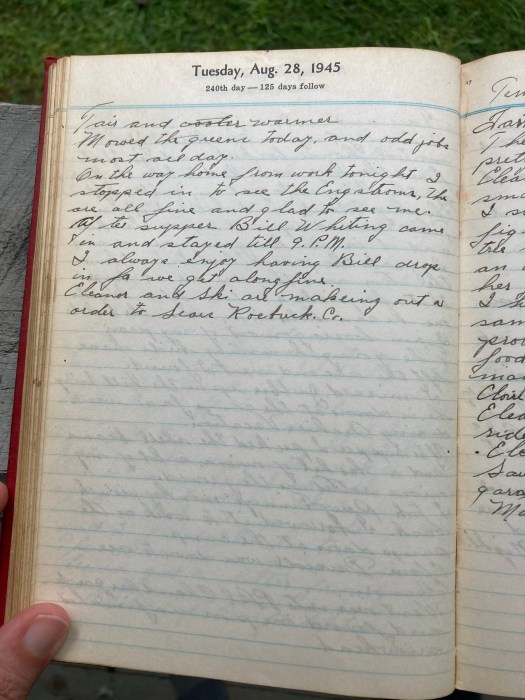 Tuesday, Aug. 28, 1945
240th day — 125 days follow
Fair and cooler warmer
Mowed the greens today, and odd jobs
most all day.
On the way home from work tonight I
stopped in to see the Engstroms, The
are all fine and glad to see me.
After supper Bill Whiting came
in and stayed till 9. P.M.
I always enjoy having Bill drop
in for we get along fine.
Eleanor and Ski are makeing out a
order to Sears Roebuck. Co.